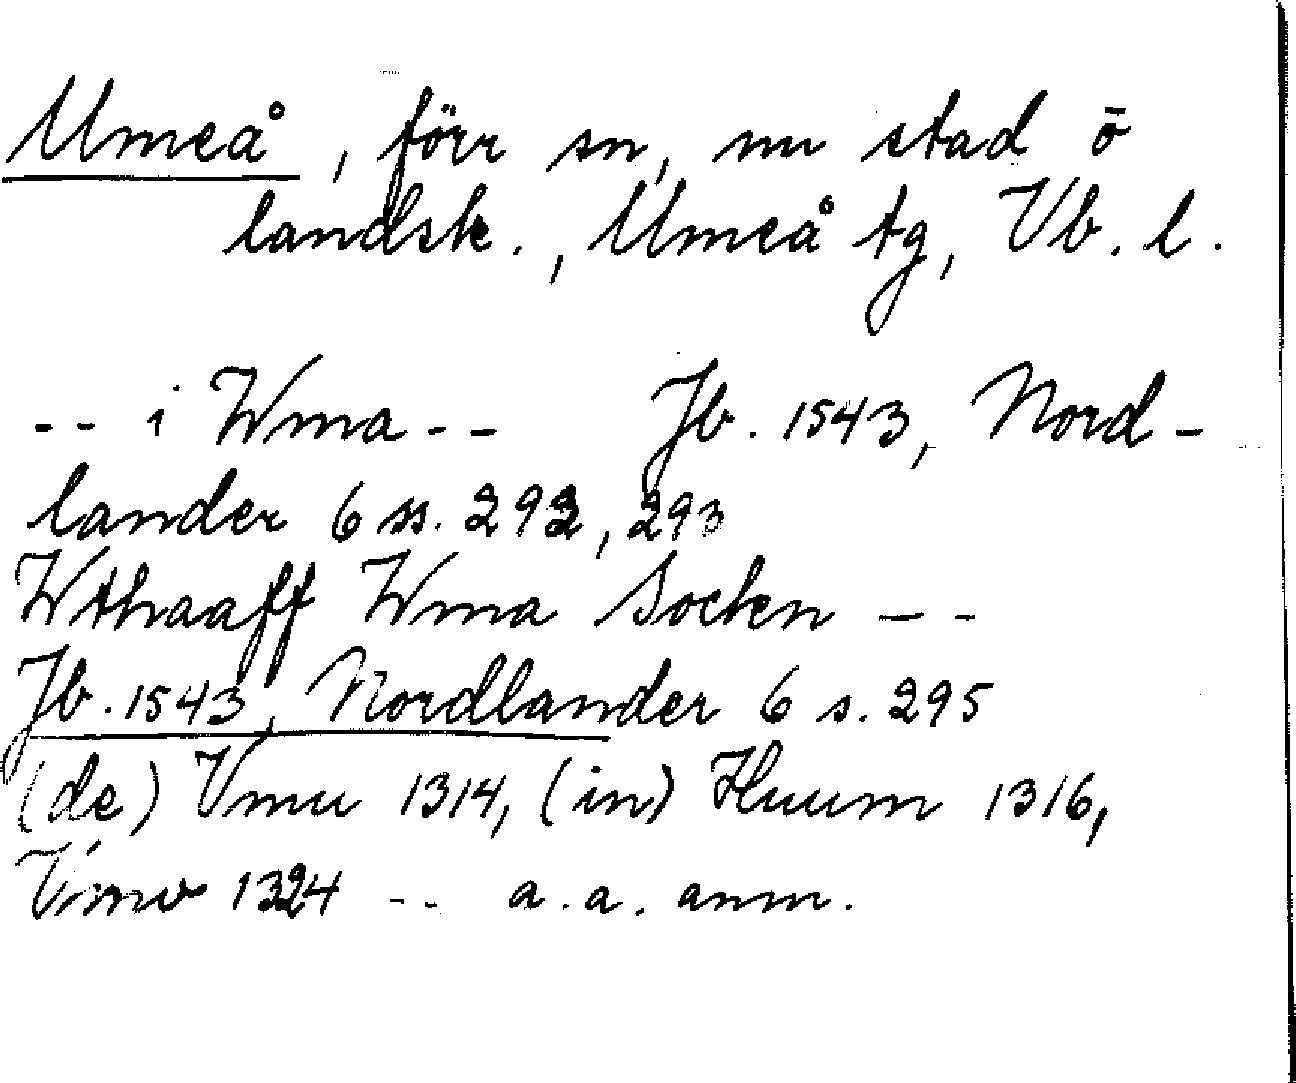 Umeå, förr sn, nu stad o
landsk., Umeå tg, Vb. l.
-- i Wma -- Jb. 1543, Nord-
lander 6 ss. 292, 293
Wthaaff Wma Socken --
Jb. 1543, Nordlander 6 s. 295
(de) Vmu 1314, (in) Huum 1316,
Vmo 1324 -- a.a. anm.